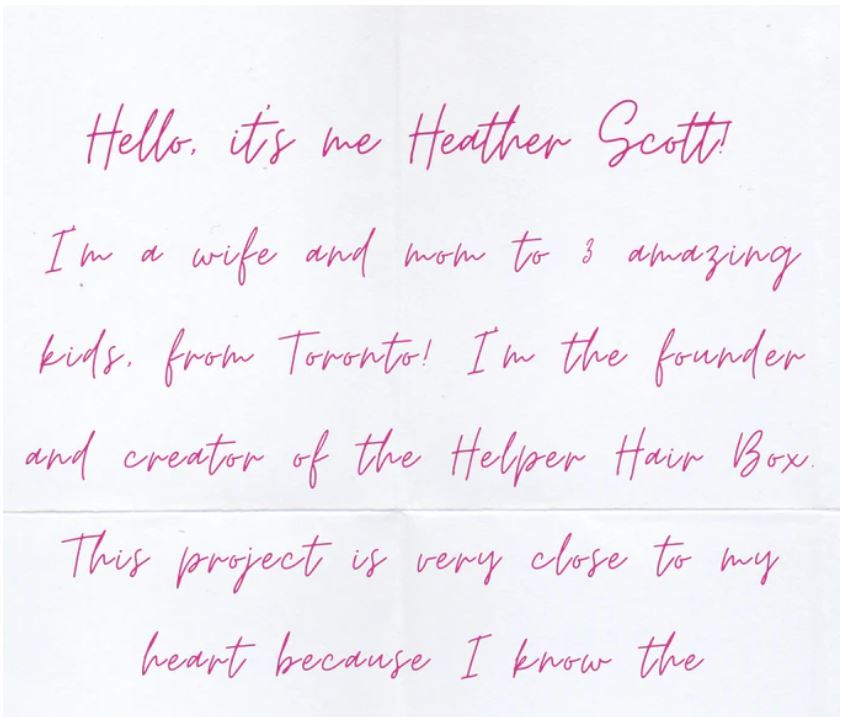 Hello, it's me Heather Scott!
I'm a wife and mom to 3 amazing
kids, from Toronto! I'm the founder
and creator of the Helper Hair Box.
This project is very close to my
heart because I know the